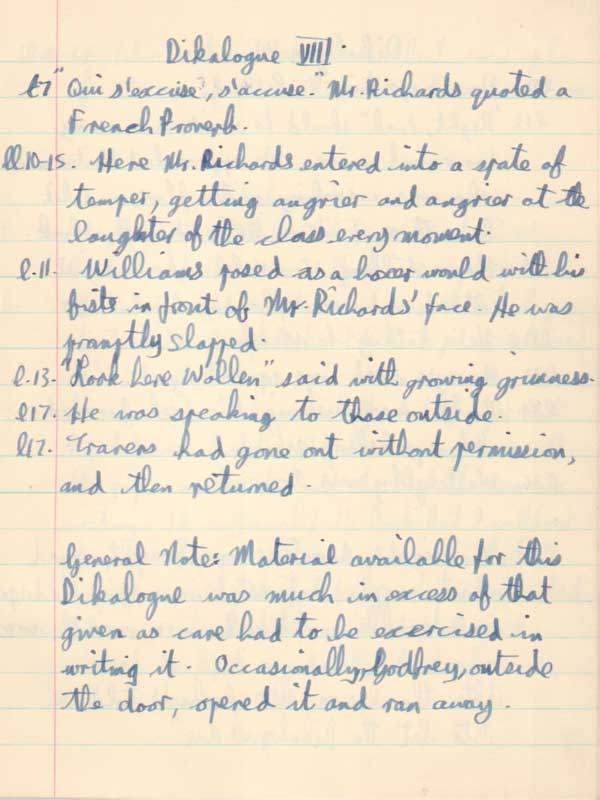 Dikalogue VIII.
l7 "Qui s'excuse, s'accuse." Mr. Richards quoted a
French Proverb.
ll.10-15. Here Mr. Richards entered into a spate of
temper, getting angrier and angrier at the
laughter of the class every moment.
l.11. Williams posed as a boxer would with his
fists in front of Mr. Richards' face. He was
promptly slapped.
l.13. "Look here Wollen" said with growing grimness.
l17. He was speaking to those outside.
l17. Travers had gone out without permission,
and then returned.
General Note: Material available for this
Dikalogue was much in excess of that
given as care had to be exercised in
writing it. Occasionally, Godfrey, outside
the door, opened it and ran away.